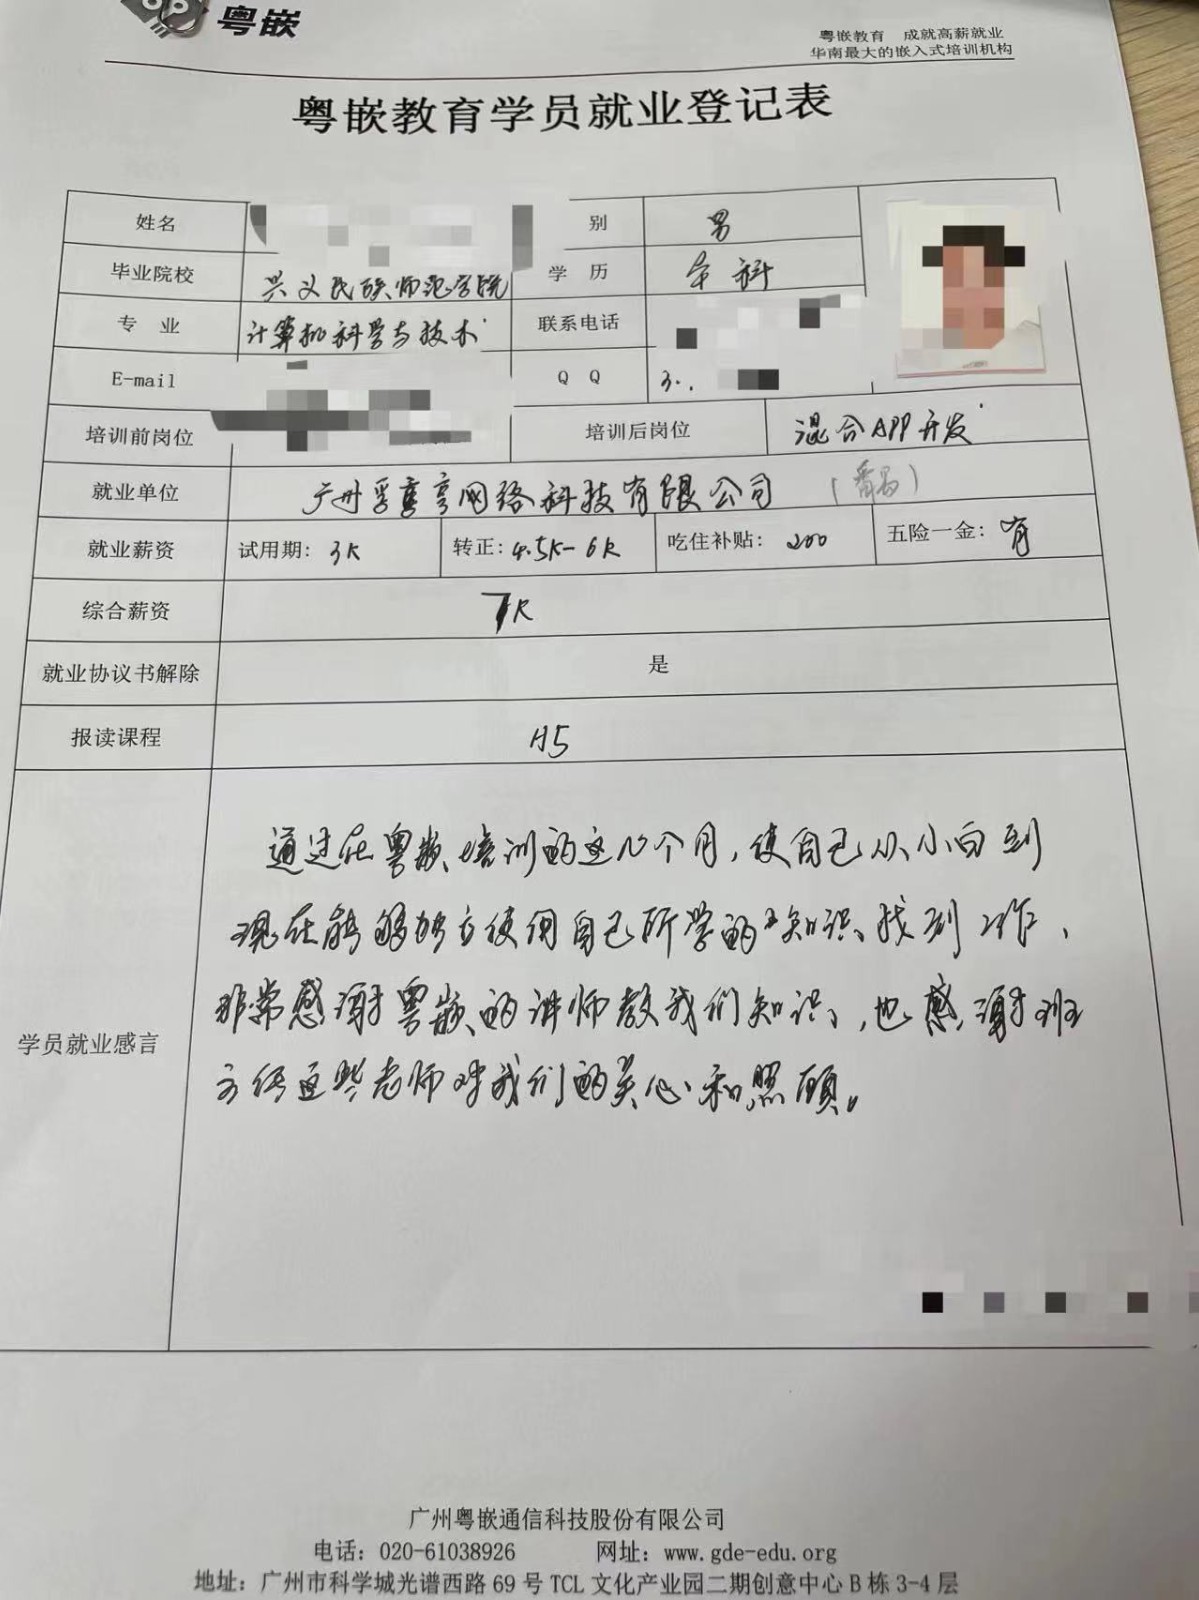 粤嵌
粤嵌教育 成就高薪就业
华南最大的嵌入式培训机构
粤嵌教育学员就业登记表
姓名 别 男
毕业院校 兴义民族师范学院 学 历 本科
专 业 计算机科学与技术 联系电话
E-mail Q Q 3..
培训前岗位 培训后岗位 混合APP开发
就业单位 广州孚喜享网络科技有限公司 (番禺)
就业薪资 试用期: 3K 转正: 4.5K-6K 吃住补贴: 200 五险一金: 有
综合薪资 7K
就业协议书解除 是
报读课程 H5
学员就业感言
通过在粤嵌培训的这几个月,使自己从小白到
现在能够独立使用自己所学的知识找到工作,
非常感谢粤嵌的讲师教我们知识,也感谢班
主任这些老师对我们的关心和照顾。
广州粤嵌通信科技股份有限公司
电话: 020-61038926 网址: www.gde-edu.org
地址: 广州市科学城光谱西路 69 号 TCL 文化产业园二期创意中心 B 栋 3-4 层